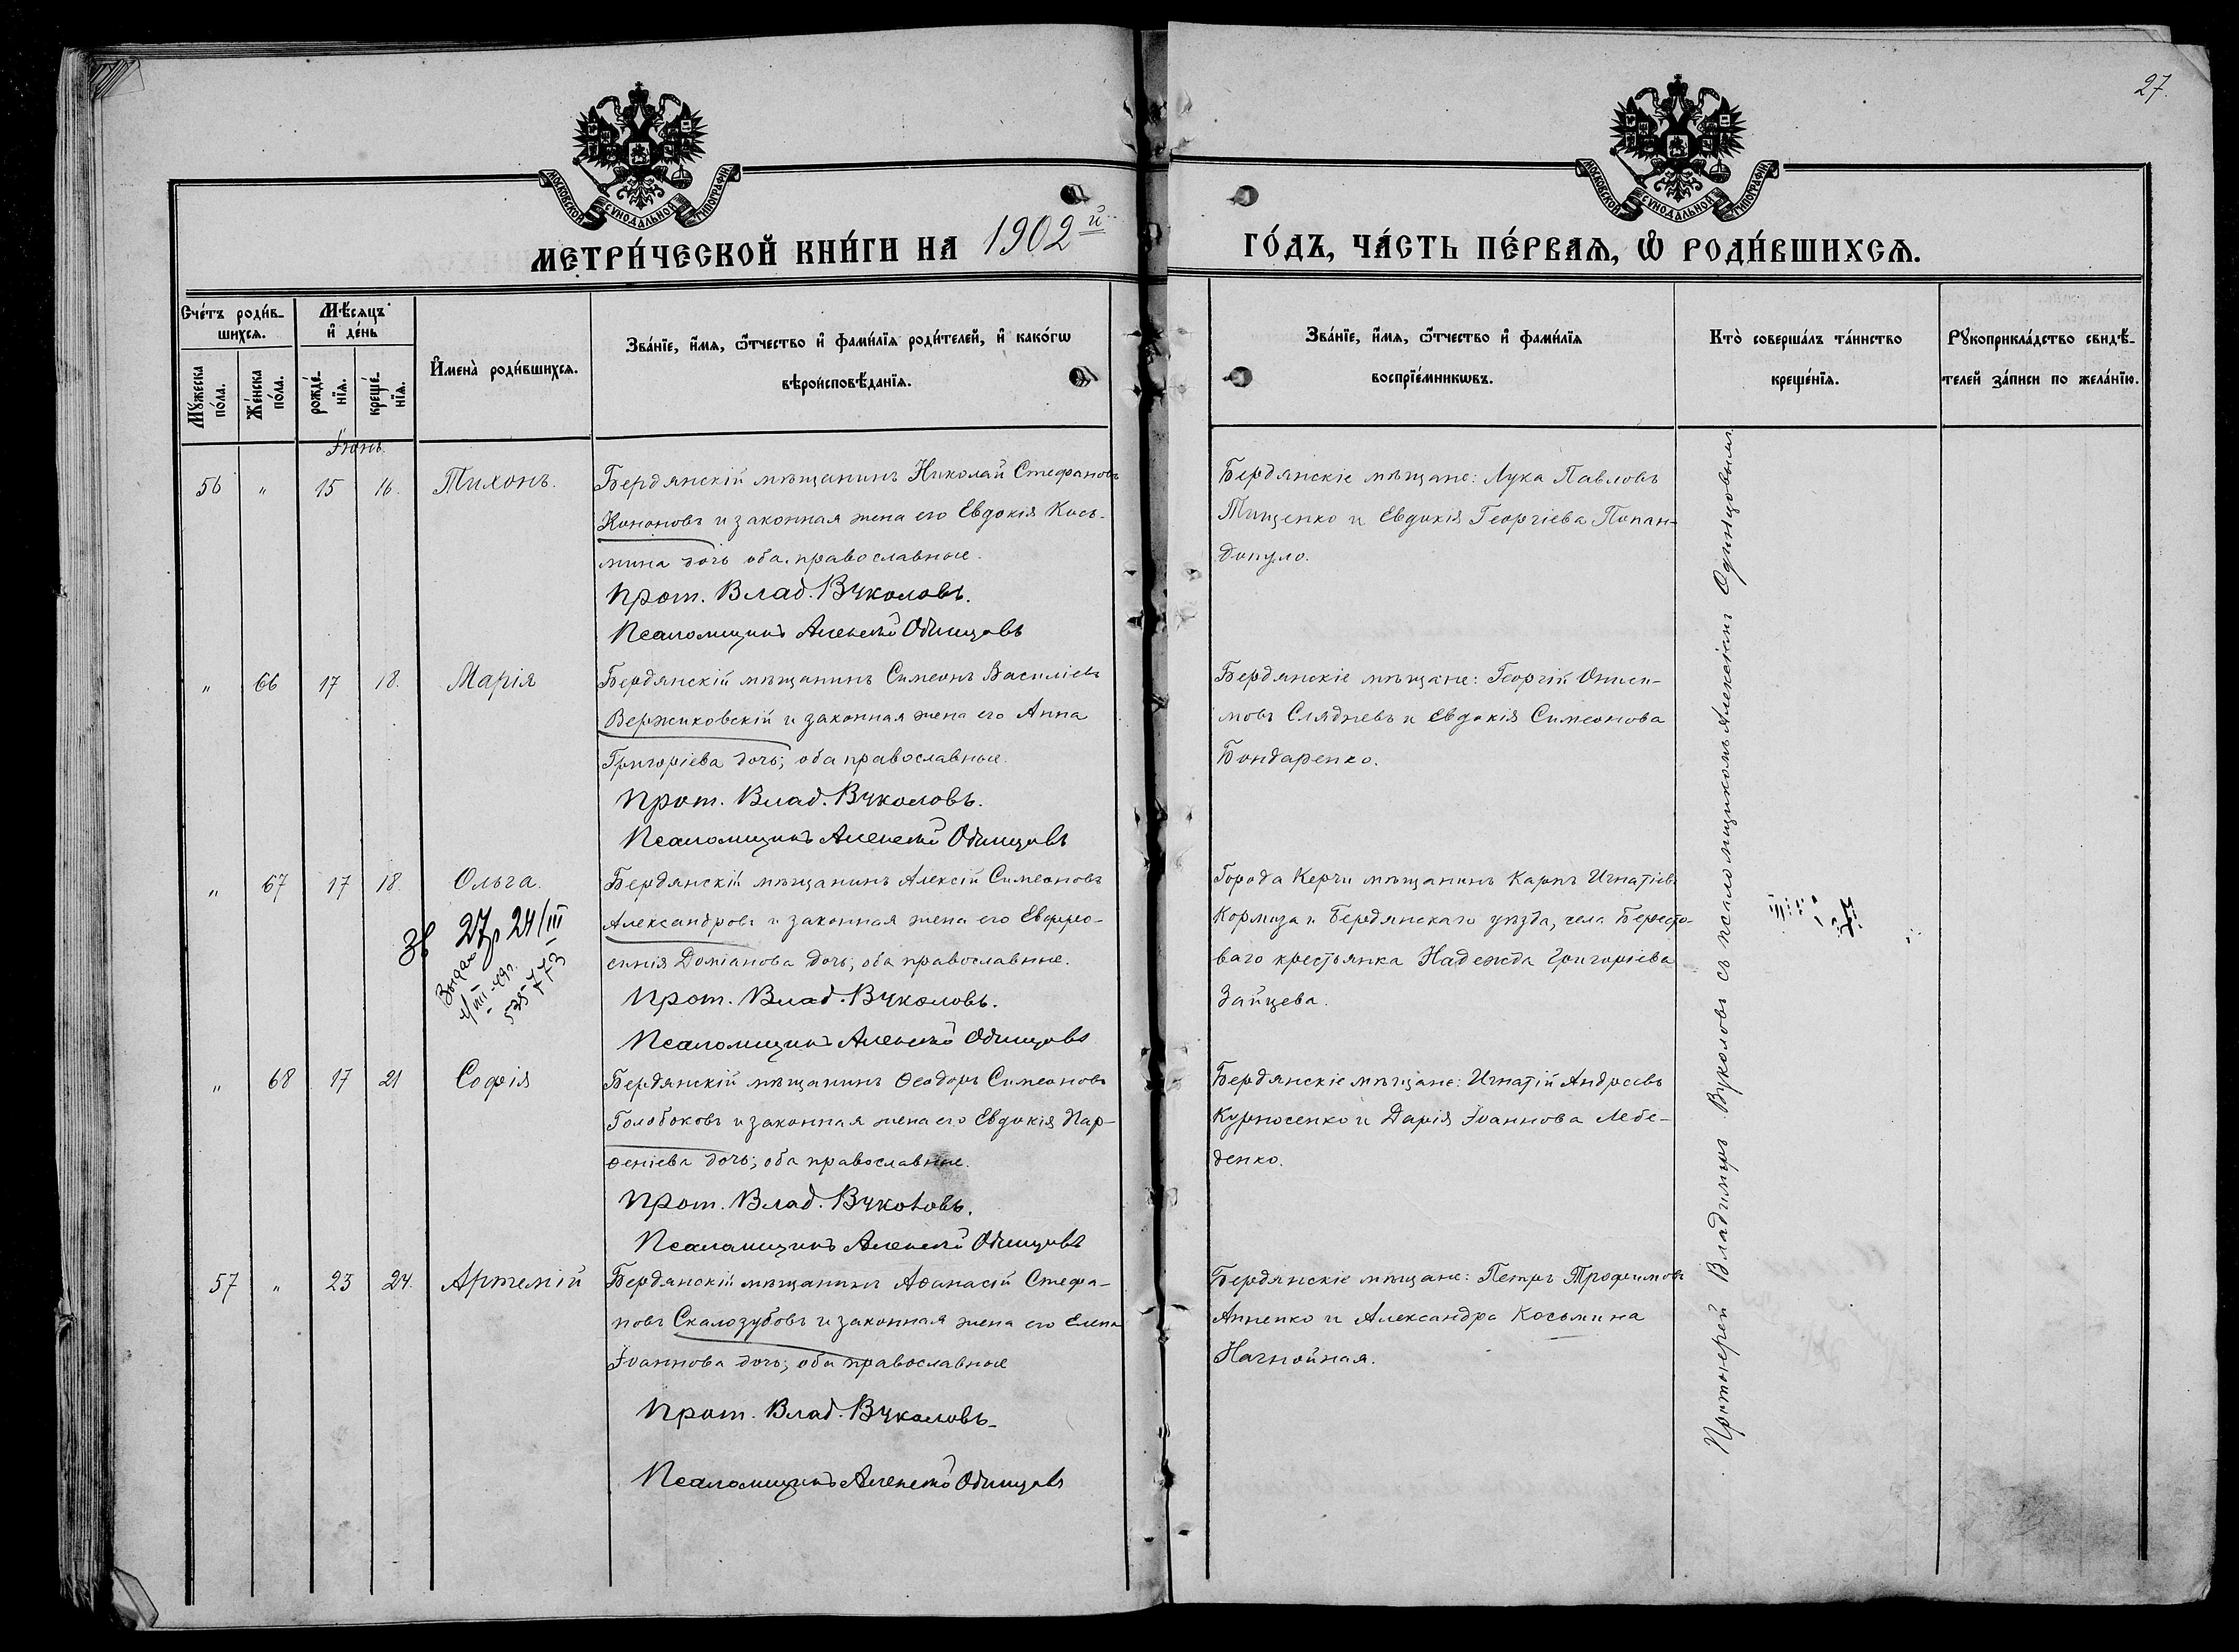 27.
МОСКОВСКОЙ СѴНОДАЛЬНОЙ ТИПОГРАФІИ
МОСКОВСКОЙ СѴНОДАЛЬНОЙ ТИПОГРАФІИ
МЕТРИ́ЧЕСКОЙ КНИ́ГИ НА 1902й ГО́ДЪ, ЧА́СТЬ ПЕ́РВАѦ, Ѡ҆ РОДИ́ВШИХСѦ.
Счéтъ роди́в-
шихсѧ.
Мꙋ́жеска по́ла.
Же́нска по́ла.
Мѣ́сѧцъ
и҆ де́нь
рожде́-
нїѧ.
креще́-
нїѧ.
И҆мена̀ роди́вшихсѧ.
Зва́нїе, и҆́мѧ, ѻ҆́тчество и҆ фами́лїѧ роди́телей, и҆ како́гѡ
вѣроисповѣ́данїѧ.
Зва́нїе, и҆́мѧ, ѻ҆́тчество и҆ фами́лїѧ
воспрїе́мникѡвъ.
Кто̀ соверша́лъ та́инство
креще́нїѧ.
Рꙋкоприкла́дство свидѣ́-
телей за́писи по жела́нїю.
Іюнь.
56 " 15 16. Тихонъ.
Бердянскій мѣщанинъ Николай Стефановъ
Кононовъ и законная жена его Евдокія Кось-
мина дочь оба православные.
Прот. Влад. Вуколовъ.
Псаломщикъ Алексѣй Одинцовъ
Бердянскіе мѣщане: Лука Павловъ
Тищенко и Евдокія Георгіева Попан-
допуло.
" 66 17 18. Марія
Бердянскій мѣщанинъ Симеонъ Василіевъ
Вержиковскій и законная жена его Анна
Григоріева дочь; оба православные.
Прот. Влад. Вуколовъ.
Псаломщикъ Алексѣй Одинцовъ
Бердянскіе мѣщане: Георгій Ониси-
мовъ Слядневъ и Евдокія Симеонова
Бондаренко.
" 67 17 18. Ольга.
27р 24/III
Выдан
4/VIII-49г.
Бердянскій мѣщанинъ Алексій Симеоновъ
Александровъ и законная жена его Евфро-
синія Доміанова дочь; оба православные.
Прот. Влад. Вуколовъ.
Псаломщикъ Алексѣй Одинцовъ
Города Керчи мѣщанинъ Карпъ Игнатіевъ
Кормиза и Бердянскаго уѣзда, села Бересто-
ваго крестьянка Надежда Григоріева
Зайцева.
" 68 17 21 Софія
Бердянскій мѣщанинъ Ѳеодоръ Симеоновъ
Голобоковъ и законная жена его Евдокія Пар-
ѳеніева дочь; оба православные.
Прот. Влад. Вуколовъ.
Псаломщикъ Алексѣй Одинцовъ
Бердянскіе мѣщане: Игнатій Андреевъ
Курносенко и Дарія Іоаннова Лебе-
денко.
57 " 23 24. Артемій
Бердянскій мѣщанинъ Аѳанасій Стефа-
новъ Скалозубовъ и законная жена его Елена
Іоаннова дочь; оба православные
Прот. Влад. Вуколовъ.
Псаломщикъ Алексѣй Одинцовъ
Бердянскіе мѣщане: Петръ Трофимовъ
Анненко и Александра Косьмина
Нагнойная.
Протоіерей Владиміръ Вуколовъ съ псаломщикомъ Алексіемъ Одинцовымъ.